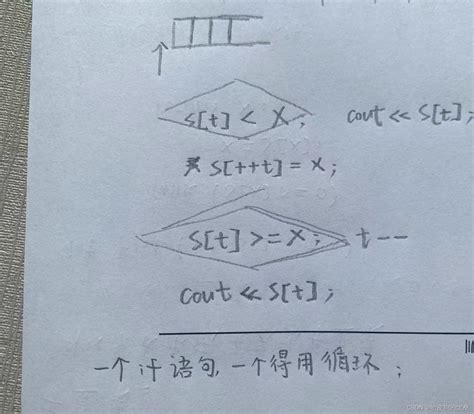 s[t] < X; cout << s[t];
s[++t] = X;
s[t] >= X; t--
cout << s[t];
一个汁语句,一个得用循环;